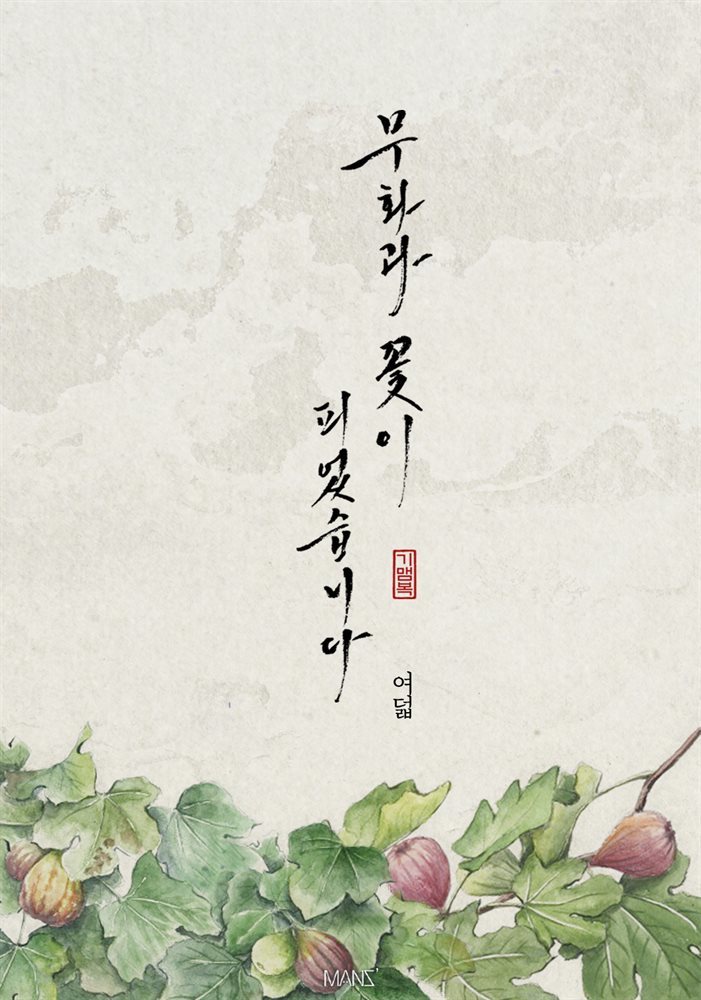 무화과 꽃이
피었습니다
기맴복
여덟
MANS'